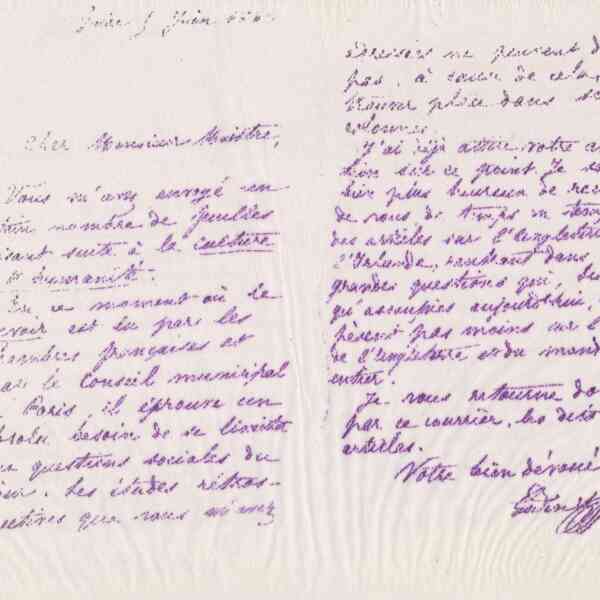 Juin
Cher Monsieur Maistre,
Vous m'avez envoyé un
nombre de feuilles
faisant suite à la culture
humanité.
En ce moment où le
Devoir est lu par les
Chambres françaises et
par le Conseil municipal
Paris, il éprouve un
absolu besoin de se limiter
aux questions sociales du
jour. Les études rétros-
pectives que vous m'avez
adressées ne peuvent
pas, à cause de cela,
trouver place dans
colonnes.
J'ai déjà attiré votre
tion sur ce point. Je
bien plus heureux de
de vous de temps en
des articles sur l'Angleterre
l'Irlande, rentrant dans
grandes questions qui,
qu'assoupies aujourd'hui,
pèsent pas moins sur
de l'Angleterre et du monde
entier.
Je vous retourne
par ce courrier, les dits
articles.
Votre bien dévoué
Godin